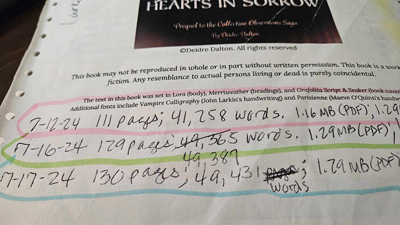 HEARTS IN SORROW
Prequel to the Collective Obsessions Saga
By Deidre Dalton
©Deidre Dalton. All rights reserved
This book may not be reproduced in whole or in part without written permission. This book is a work
fiction. Any resemblance to actual persons living or dead is purely coincidental.
The text in this book was set in Lora (body), Merriweather (headings), and Grafolita Script & Seaker (book cover
Additional fonts include Vampire Calligraphy (John Larkin's handwriting) and Parisienne (Maeve O'Quinn's handwri
7-12-24 111 pages; 41,258 words. 1.16 MB (PDF), 1.2
7-16-24 129 pages, 49,365 words. 1.29 MB (PDF),
49,387
7-17-24 130 pages; 49,431 ; 1.29 MB (PDF)
words